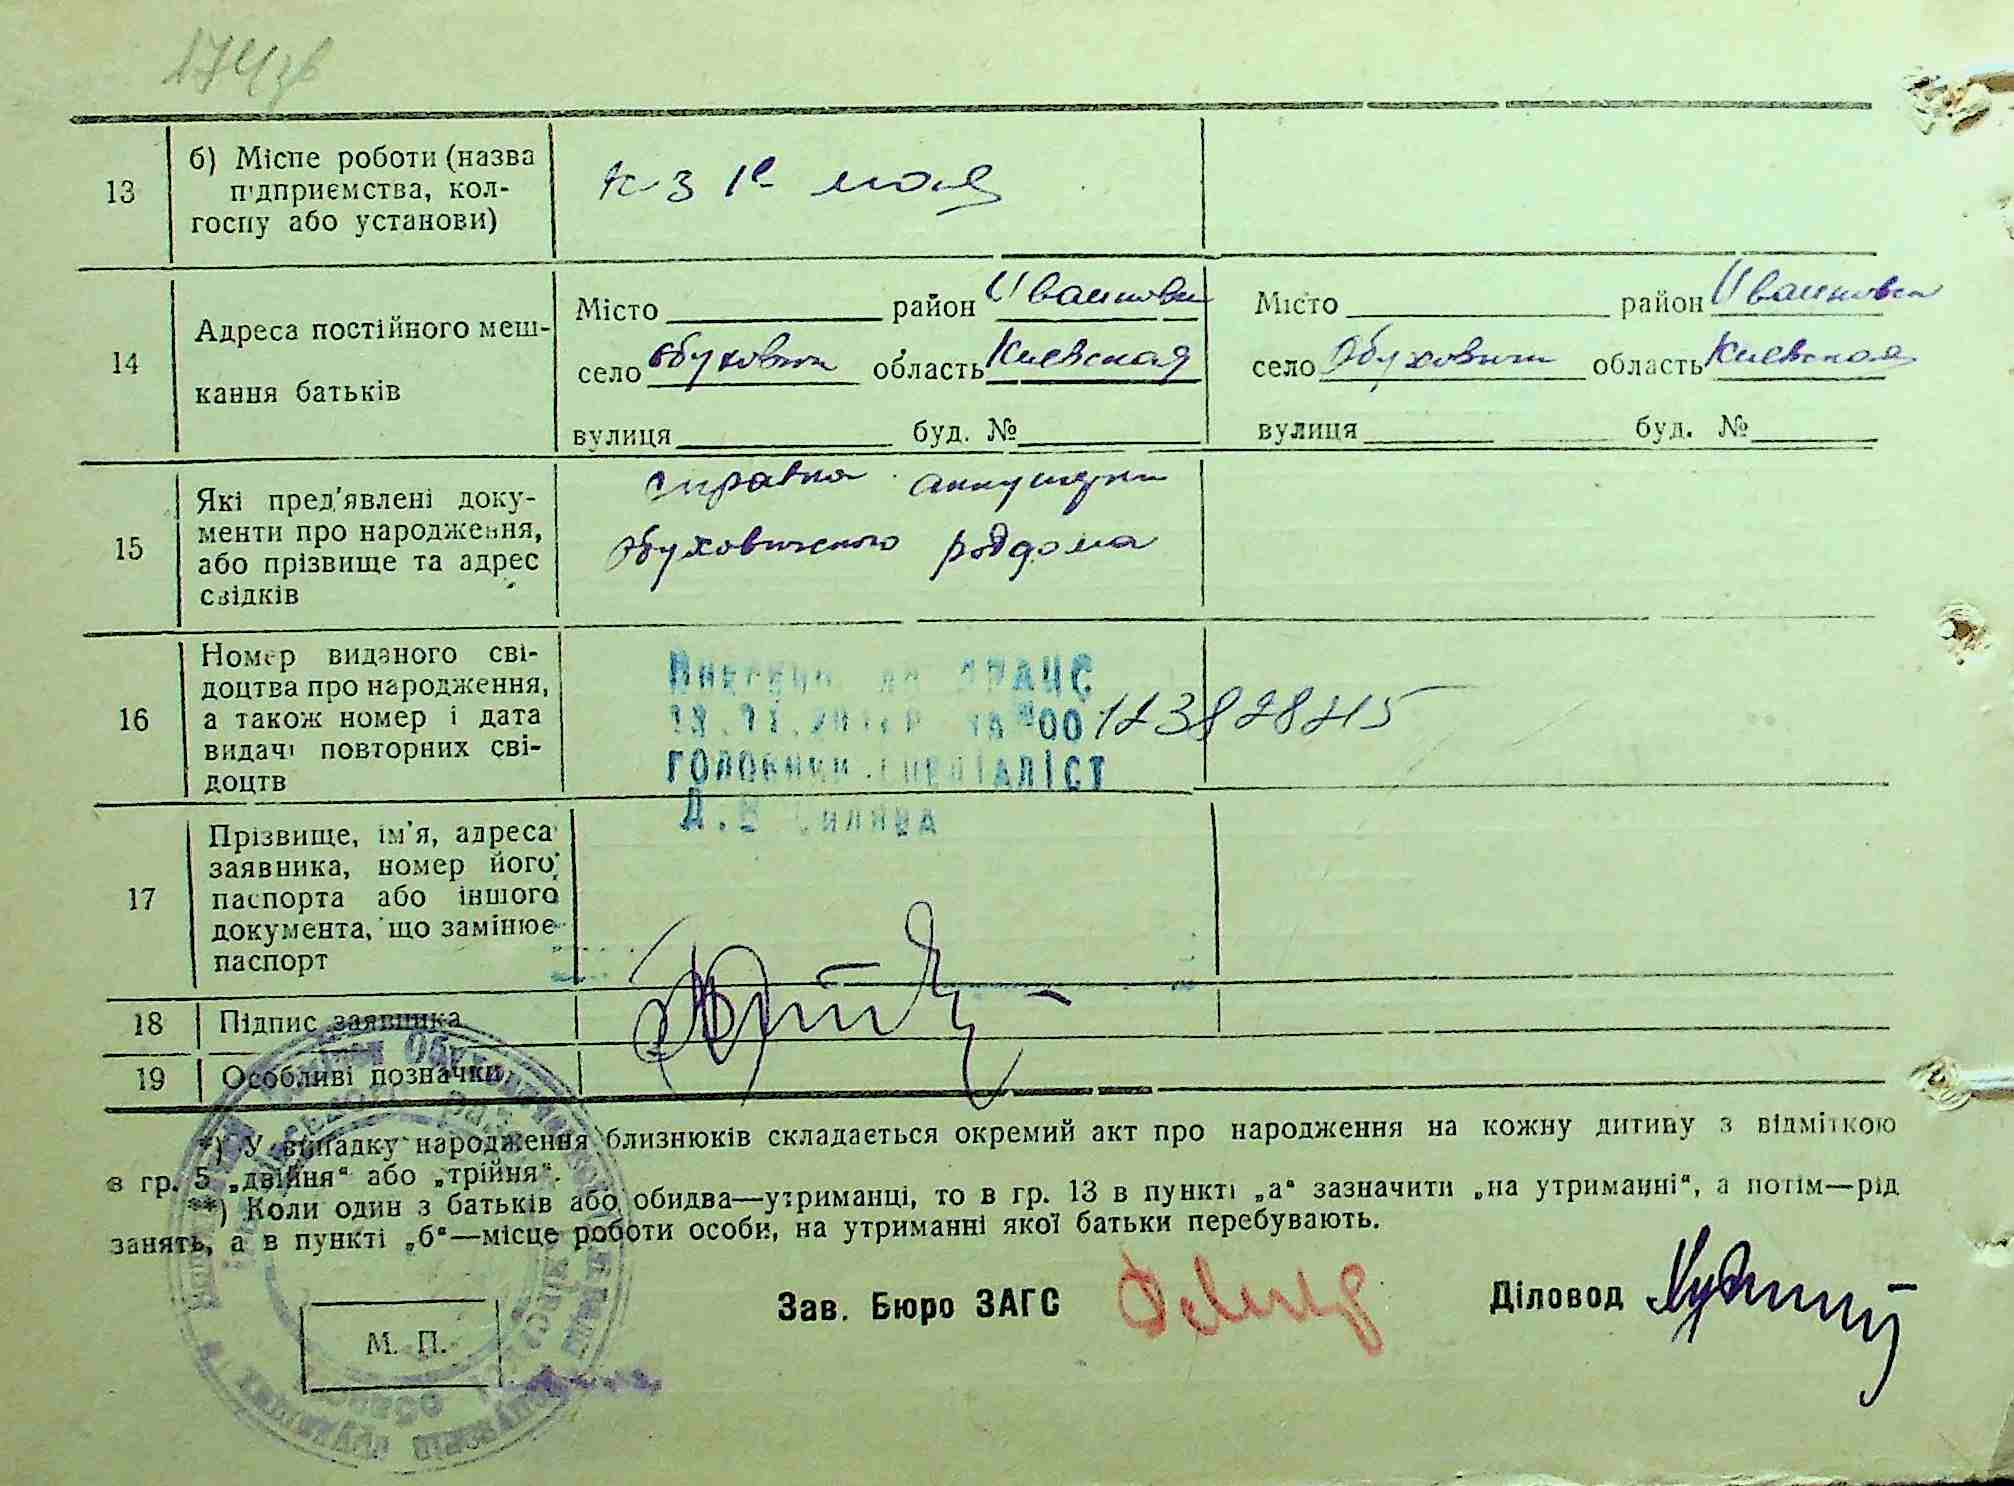 174зв
13
б) Місце роботи (назва
підприємства, кол-
госпу або установи)
к-з 1е мая
14
Адреса постійного меш-
кання батьків
Місто район Иванковск
село Обуховичи область Киевская
вулиця буд. №
Місто район Иванковск
село Обуховичи область Киевская
вулиця буд. №
15
Які пред'явлені доку-
менти про народження,
або прізвище та адрес
свідків
справка акушерки
Обуховичского роддома
16
Номер виданого сві-
доцтва про народження,
а також номер і дата
видачі повторних сві-
доцтв
Внесено до ДРАЦС
за №00123828415
головний спеціаліст
17
Прізвище, ім'я, адреса
заявника, номер його
паспорта або іншого
документа, що замінює
паспорт
18
Підпис заявника
19
Особливі позначки
*) У випадку народження близнюків складається окремий акт про народження на кожну дитину з відміткою
в гр. 5 „двійня“ або „трійня“.
**) Коли один з батьків або обидва—утриманці, то в гр. 13 в пункті „а“ зазначити „на утриманні“, а потім—рід
занять, а в пункті „б“—місце роботи особи, на утриманні якої батьки перебувають.
Зав. Бюро ЗАГС
Діловод
М. П.